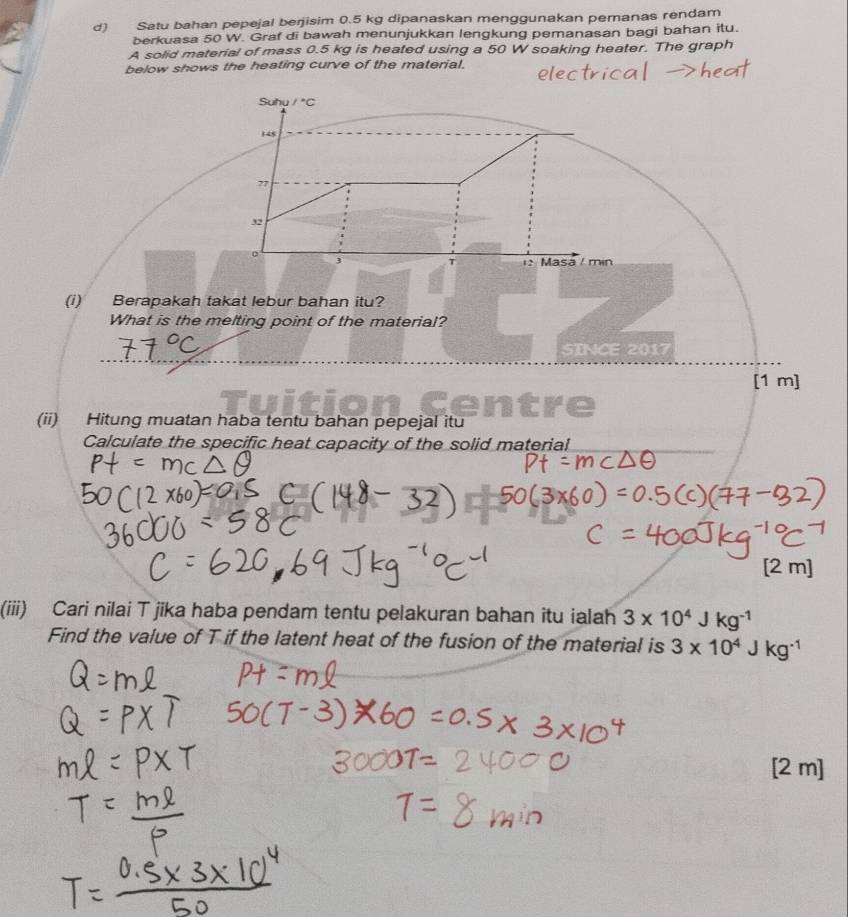 d) Satu bahan pepejal berjisim 0.5 kg dipanaskan menggunakan pemanas rendam
berkuasa 50 W. Graf di bawah menunjukkan lengkung pemanasan bagi bahan itu.
A solid material of mass 0.5 kg is heated using a 50 W soaking heater. The graph
below shows the heating curve of the material.
electrical → heat
Suhu / °C
148
77
32
0
3
T
12
Masa / min
witz
SINCE 2017
Tuition Centre
(i) Berapakah takat lebur bahan itu?
What is the melting point of the material?
77°C
[1 m]
(ii) Hitung muatan haba tentu bahan pepejal itu
Calculate the specific heat capacity of the solid material
Pt = mcΔθ
50(12×60)=0.5 c (148-32)
36000 = 58c
c = 620.69 Jkg⁻¹°C⁻¹
Pt = mcΔθ
50(3×60) = 0.5(c)(77-32)
c = 400Jkg⁻¹°C⁻¹
[2 m]
品 补 习 中 心
(iii) Cari nilai T jika haba pendam tentu pelakuran bahan itu ialah 3 x 10⁴ J kg⁻¹
Find the value of T if the latent heat of the fusion of the material is 3 x 10⁴ J kg⁻¹
Q = ml
Q = P×T
ml = P×T
T = ml/P
T = 0.5×3×10⁴/50
Pt = ml
50(T-3)×60 = 0.5 × 3×10⁴
3000T = 24000
T = 8 min
[2 m]